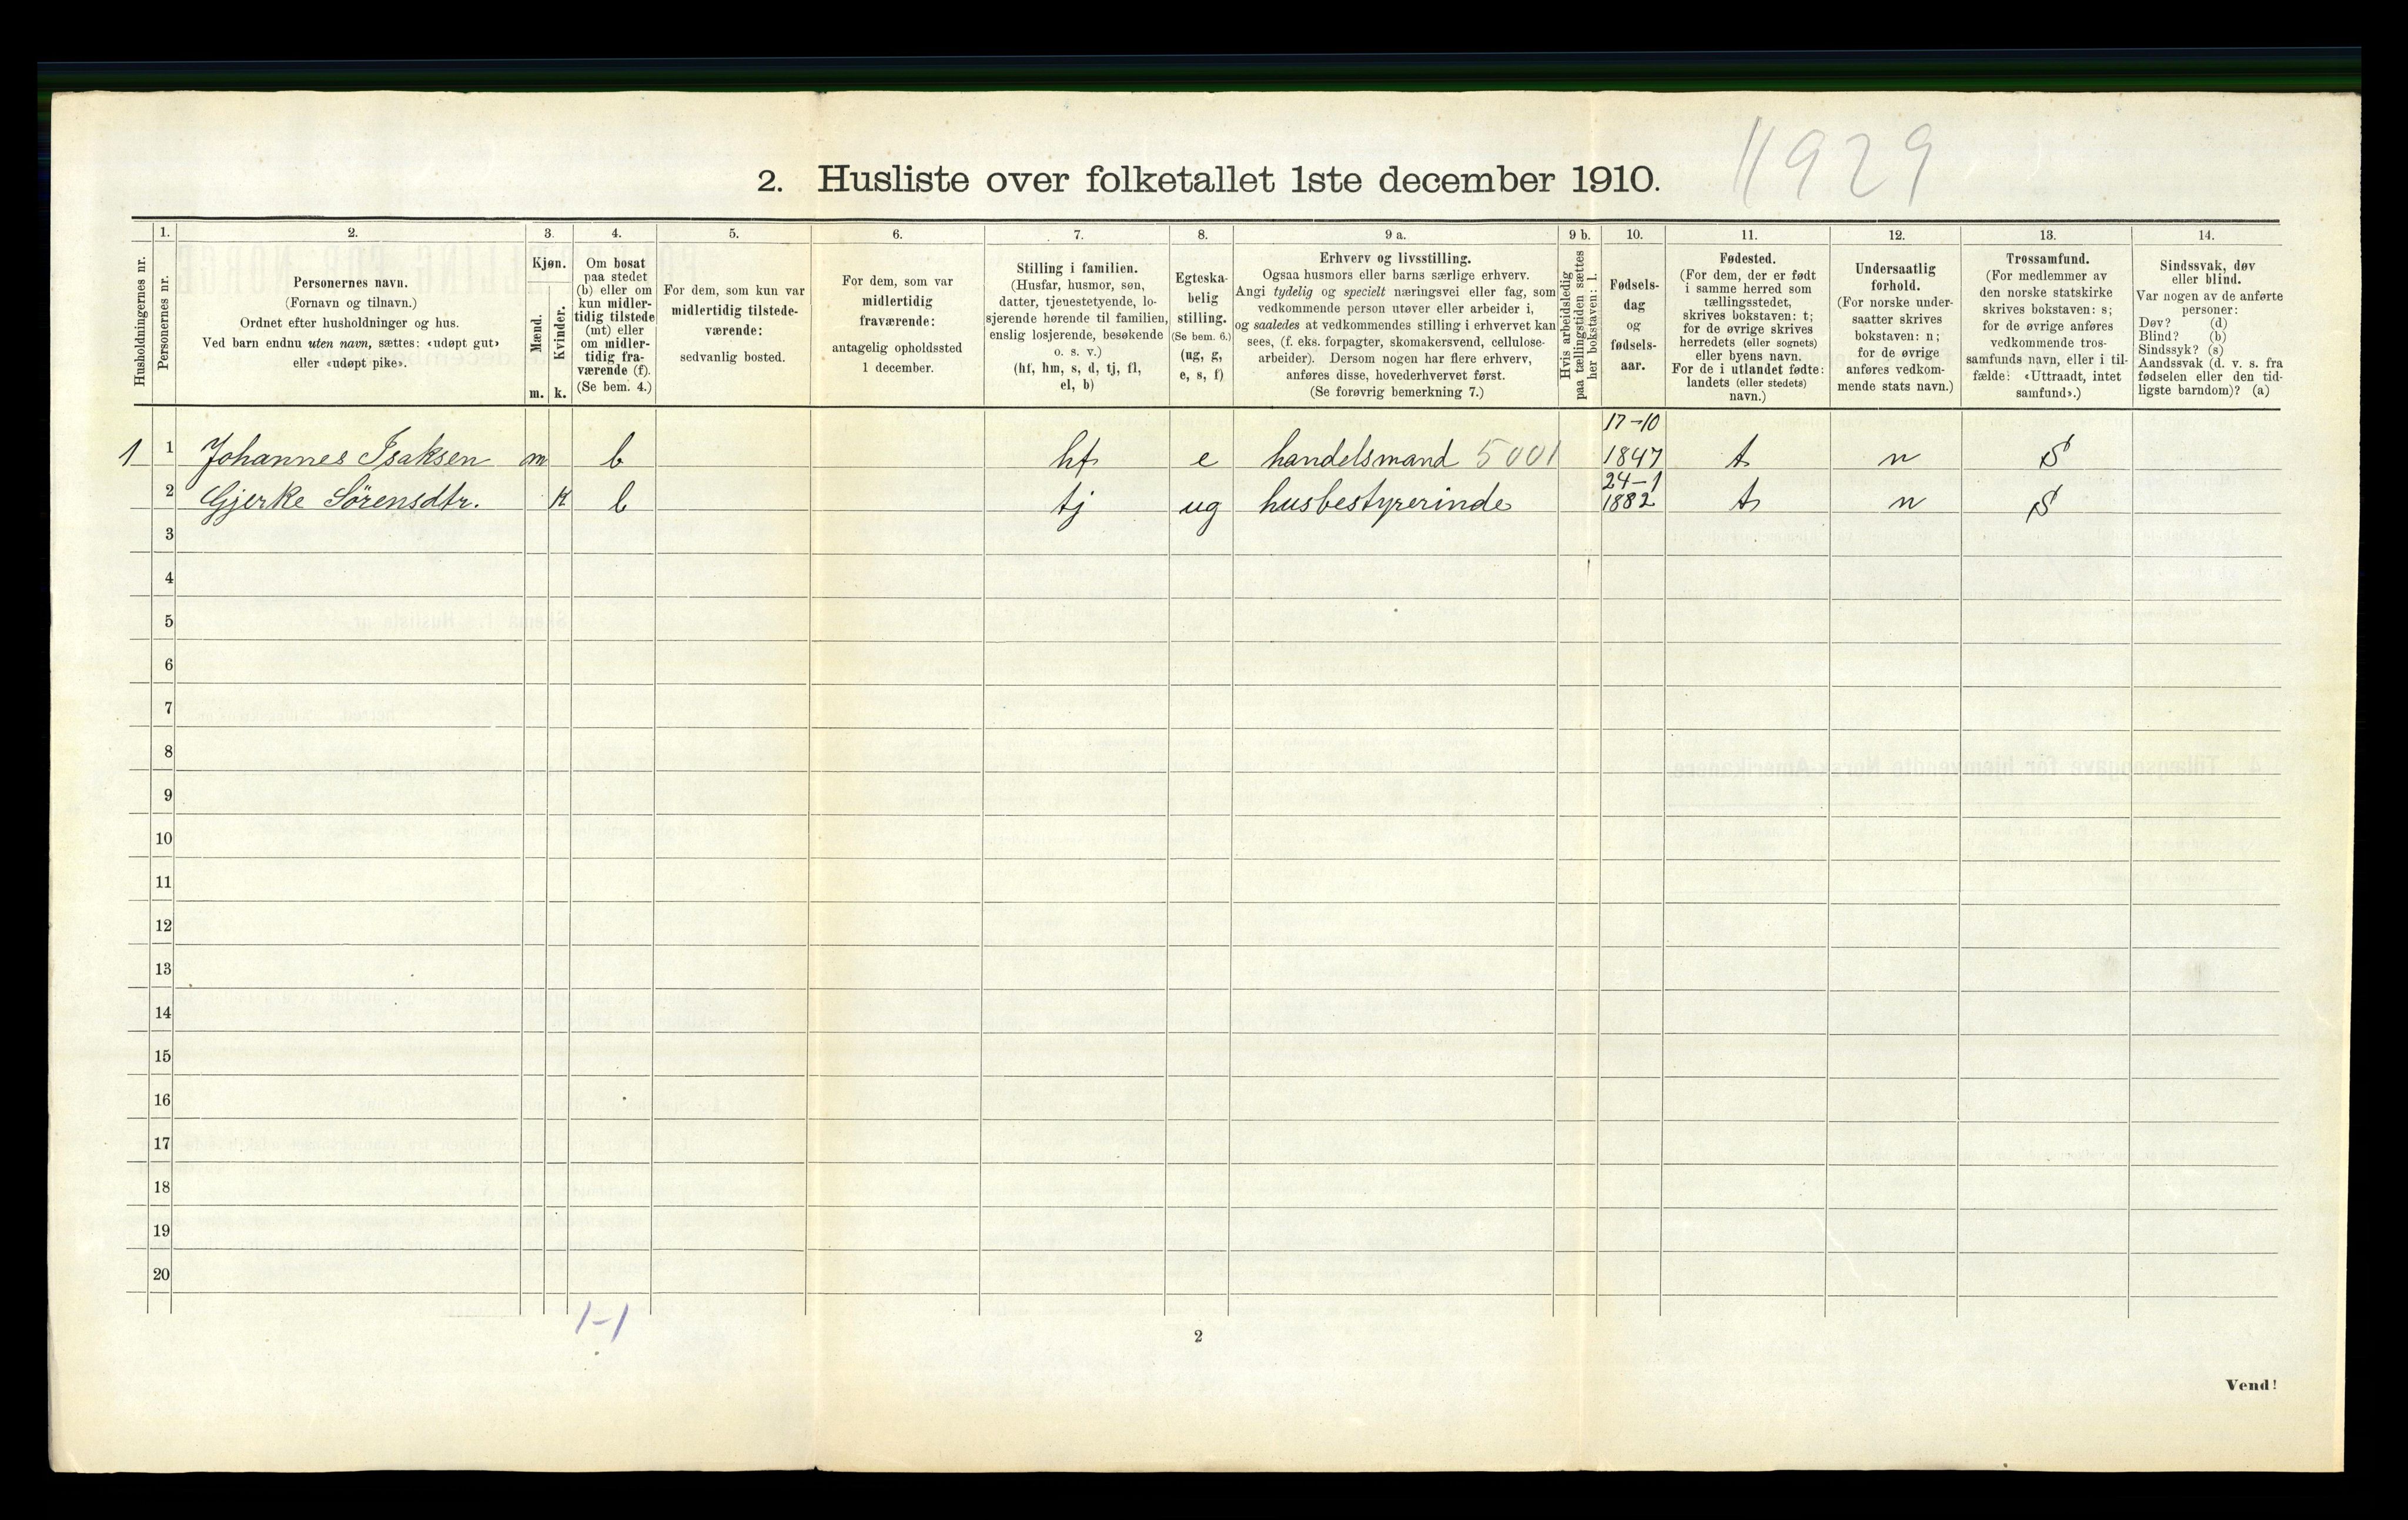 1929
2. Husliste over folketallet 1ste december 1910.
Husholdningernes nr.
1.
Personernes nr.
2.
Personernes navn.
(Fornavn og tilnavn.)
Ordnet efter husholdninger og hus.
Ved barn endnu uten navn, sættes: «udøpt gut»
eller «udøpt pike».
3.
Kjøn.
Mænd.
Kvinder.
m. k.
4.
Om bosat
paa stedet
(b) eller om
kun midler-
tidig tilstede
(mt) eller
om midler-
tidig fra-
værende (f).
(Se bem. 4.)
5.
For dem, som kun var
midlertidig tilstede-
værende:
sedvanlig bosted.
6.
For dem, som var
midlertidig
fraværende:
antagelig opholdssted
1 december.
7.
Stilling i familien.
(Husfar, husmor, søn,
datter, tjenestetyende, lo-
sjerende hørende til familien,
enslig losjerende, besøkende
o. s. v.)
(hf, hm, s, d, tj, fl,
el, b)
8.
Egteska-
belig
stilling.
(Se bem. 6.)
(ug, g,
e, s, f)
9 a.
Erhverv og livsstilling.
Ogsaa husmors eller barns særlige erhverv.
Angi tydelig og specielt næringsvei eller fag, som
vedkommende person utøver eller arbeider i,
og saaledes at vedkommendes stilling i erhvervet kan
sees, (f. eks. forpagter, skomakersvend, cellulose-
arbeider). Dersom nogen har flere erhverv,
anføres disse, hovederhvervet først.
(Se forøvrig bemerkning 7.)
9 b.
Hvis arbeidsledig
paa tællingstiden sættes
her bokstaven: l.
10.
Fødsels-
dag
og
fødsels-
aar.
11.
Fødested.
(For dem, der er født
i samme herred som
tællingsstedet,
skrives bokstaven: t;
for de øvrige skrives
herredets (eller sognets)
eller byens navn.
For de i utlandet fødte:
landets (eller stedets)
navn.)
12.
Undersaatlig
forhold.
(For norske under-
saatter skrives
bokstaven: n;
for de øvrige
anføres vedkom-
mende stats navn.)
13.
Trossamfund.
(For medlemmer av
den norske statskirke
skrives bokstaven: s;
for de øvrige anføres
vedkommende tros-
samfunds navn, eller i til-
fælde: «Uttraadt, intet
samfund».)
14.
Sindssvak, døv
eller blind.
Var nogen av de anførte
personer:
Døv? (d)
Blind? (b)
Sindssyk? (s)
Aandssvak (d. v. s. fra
fødselen eller den tid-
ligste barndom)? (a)
17-10
1 1 Johannes Isaksen m b hf e handelsmand 5001 1847 t n S
24-1
2 Gjerke Sörensdtr. K b tj ug husbestyrerinde 1882 t n S
3
4
5
6
7
8
9
10
11
12
13
14
15
16
17
18
19
20
1-1
2
Vend!